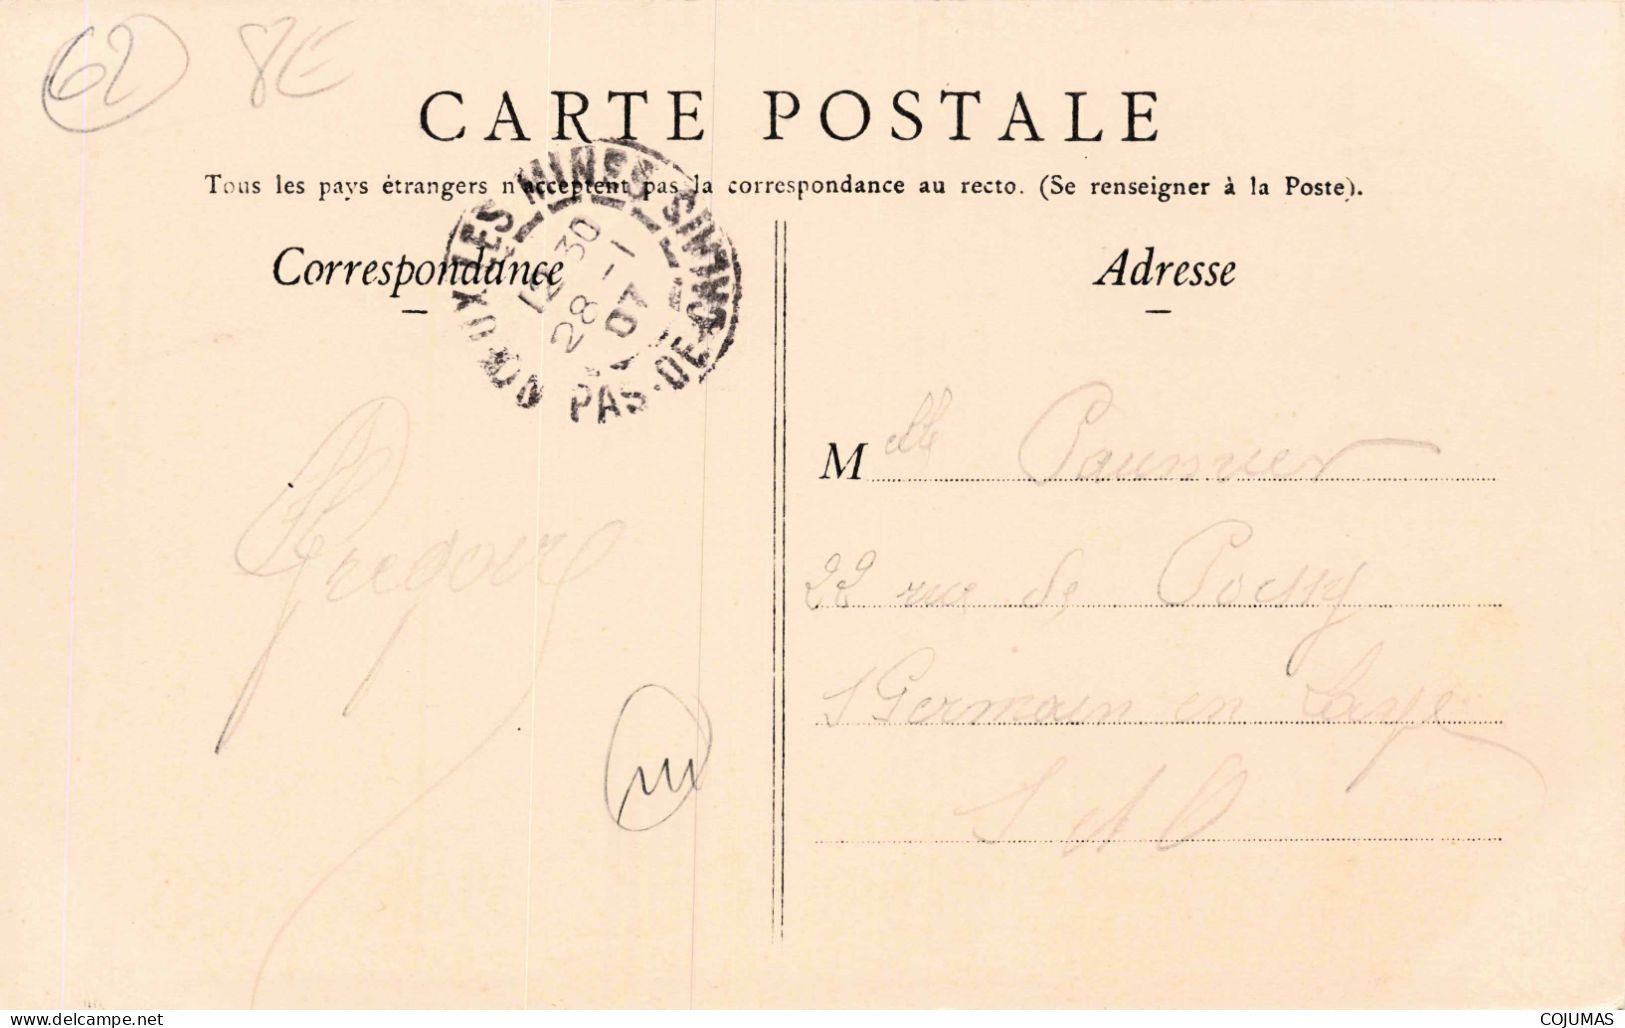 62 8E
CARTE POSTALE
Tous les pays étrangers n'acceptent pas la correspondance au recto. (Se renseigner à la Poste).
NŒUX-LES-MINES
PAS-DE-CALAIS
12 30
28 - 1
07
Correspondance
Adresse
Melle
22 rue de Poissy
St Germain en Laye
S et O
www.delcampe.net
COJUMAS